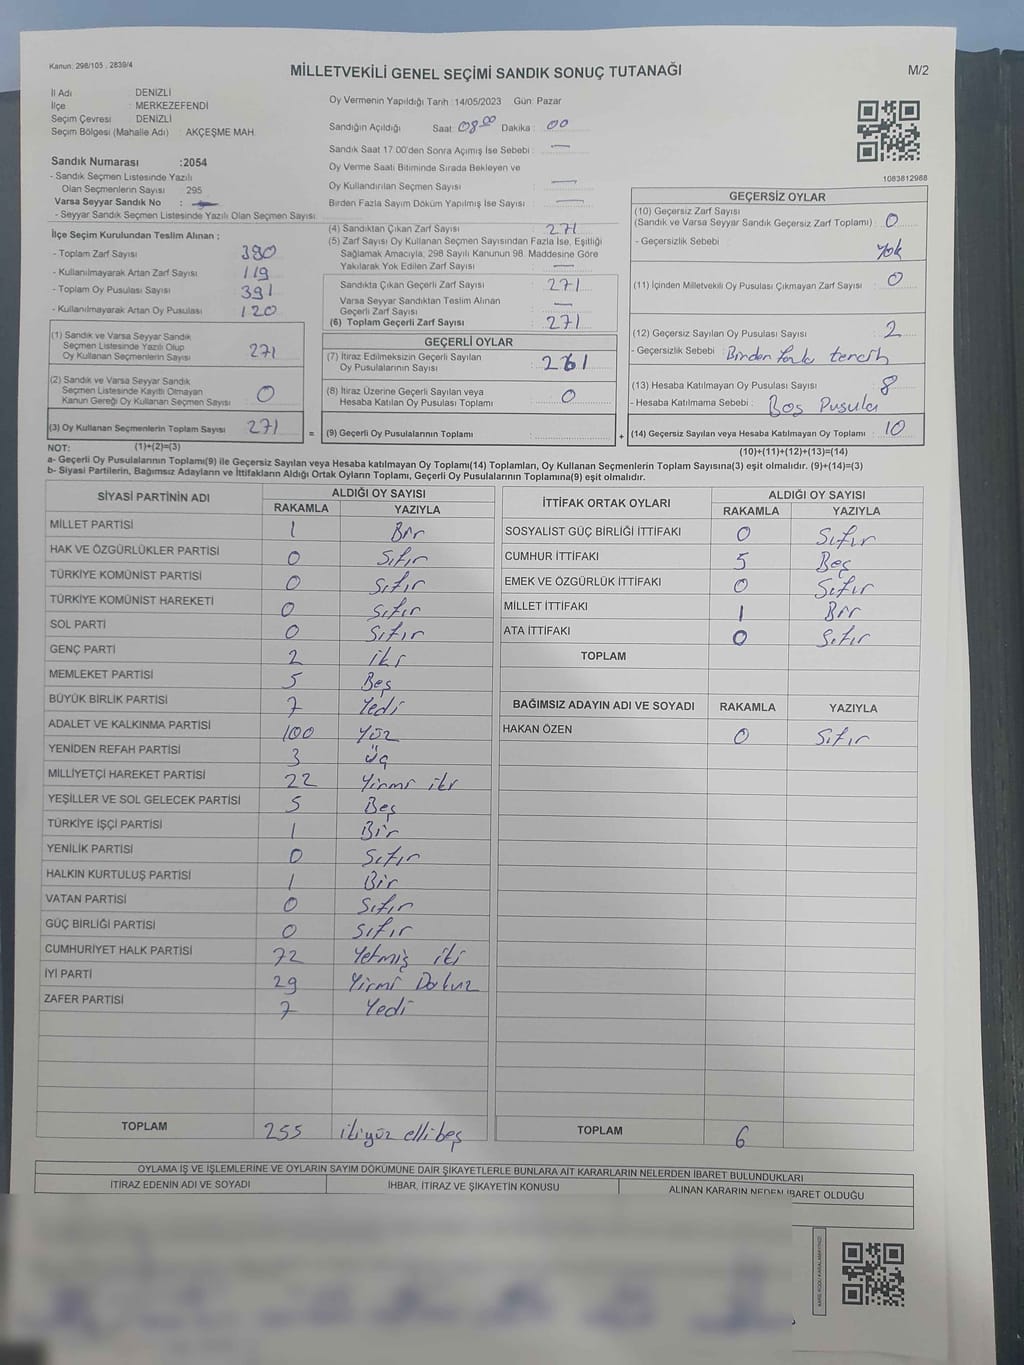 Kanun: 298/105 , 2839/4
MİLLETVEKİLİ GENEL SEÇİMİ SANDIK SONUÇ TUTANAĞI
M/2
İl Adı : DENİZLİ
İlçe : MERKEZEFENDİ
Seçim Çevresi : DENİZLİ
Seçim Bölgesi (Mahalle Adı) : AKÇEŞME MAH.
Oy Vermenin Yapıldığı Tarih :14/05/2023 Gün: Pazar
Sandığın Açıldığı Saat: 08 00 Dakika : 00
Sandık Saat 17.00'den Sonra Açımış İse Sebebi : —
Oy Verme Saati Bitiminde Sırada Bekleyen ve
Oy Kullandırılan Seçmen Sayısı : —
Birden Fazla Sayım Döküm Yapılmış İse Sayısı : —
1083812988
Sandık Numarası :2054
- Sandık Seçmen Listesinde Yazılı
Olan Seçmenlerin Sayısı : 295
Varsa Seyyar Sandık No : —
- Seyyar Sandık Seçmen Listesinde Yazılı Olan Seçmen Sayısı:
İlçe Seçim Kurulundan Teslim Alınan :
- Toplam Zarf Sayısı : 390
- Kullanılmayarak Artan Zarf Sayısı : 119
- Toplam Oy Pusulası Sayısı : 391
- Kullanılmayarak Artan Oy Pusulası : 120
(1) Sandık ve Varsa Seyyar Sandık
Seçmen Listesinde Yazılı Olup
Oy Kullanan Seçmenlerin Sayısı : 271
(2) Sandık ve Varsa Seyyar Sandık
Seçmen Listesinde Kayıtlı Olmayan
Kanun Gereği Oy Kullanan Seçmen Sayısı : 0
(3) Oy Kullanan Seçmenlerin Toplam Sayısı : 271
(4) Sandıktan Çıkan Zarf Sayısı : 271
(5) Zarf Sayısı Oy Kullanan Seçmen Sayısından Fazla İse, Eşitliği
Sağlamak Amacıyla; 298 Sayılı Kanunun 98. Maddesine Göre
Yakılarak Yok Edilen Zarf Sayısı : —
Sandıkta Çıkan Geçerli Zarf Sayısı : 271
Varsa Seyyar Sandıktan Teslim Alınan
Geçerli Zarf Sayısı : —
(6) Toplam Geçerli Zarf Sayısı : 271
GEÇERLİ OYLAR
(7) İtiraz Edilmeksizin Geçerli Sayılan
Oy Pusulalarının Sayısı : 261
(8) İtiraz Üzerine Geçerli Sayılan veya
Hesaba Katılan Oy Pusulası Toplamı : 0
= (9) Geçerli Oy Pusulalarının Toplamı :
GEÇERSİZ OYLAR
(10) Geçersiz Zarf Sayısı
(Sandık ve Varsa Seyyar Sandık Geçersiz Zarf Toplamı) : 0
- Geçersizlik Sebebi : Yok
(11) İçinden Milletvekili Oy Pusulası Çıkmayan Zarf Sayısı : 0
(12) Geçersiz Sayılan Oy Pusulası Sayısı : 2
- Geçersizlik Sebebi : Birden fazla tercih
(13) Hesaba Katılmayan Oy Pusulası Sayısı : 8
- Hesaba Katılmama Sebebi : Boş Pusula
+ (14) Geçersiz Sayılan veya Hesaba Katılmayan Oy Toplamı : 10
NOT: (1)+(2)=(3)
(10)+(11)+(12)+(13)=(14)
a- Geçerli Oy Pusulalarının Toplamı(9) ile Geçersiz Sayılan veya Hesaba katılmayan Oy Toplamı(14) Toplamları, Oy Kullanan Seçmenlerin Toplam Sayısına(3) eşit olmalıdır. (9)+(14)=(3)
b- Siyasi Partilerin, Bağımsız Adayların ve İttifakların Aldığı Ortak Oyların Toplamı, Geçerli Oy Pusulalarının Toplamına(9) eşit olmalıdır.
SİYASİ PARTİNİN ADI ALDIĞI OY SAYISI
RAKAMLA YAZIYLA
MİLLET PARTİSİ 1 Bir
HAK VE ÖZGÜRLÜKLER PARTİSİ 0 Sıfır
TÜRKİYE KOMÜNİST PARTİSİ 0 Sıfır
TÜRKİYE KOMÜNİST HAREKETİ 0 Sıfır
SOL PARTİ 0 Sıfır
GENÇ PARTİ 2 iki
MEMLEKET PARTİSİ 5 Beş
BÜYÜK BİRLİK PARTİSİ 7 Yedi
ADALET VE KALKINMA PARTİSİ 100 Yüz
YENİDEN REFAH PARTİSİ 3 Üç
MİLLİYETÇİ HAREKET PARTİSİ 22 Yirmi iki
YEŞİLLER VE SOL GELECEK PARTİSİ 5 Beş
TÜRKİYE İŞÇİ PARTİSİ 1 Bir
YENİLİK PARTİSİ 0 Sıfır
HALKIN KURTULUŞ PARTİSİ 1 Bir
VATAN PARTİSİ 0 Sıfır
GÜÇ BİRLİĞİ PARTİSİ 0 Sıfır
CUMHURİYET HALK PARTİSİ 72 Yetmiş iki
İYİ PARTİ 29 Yirmi Dokuz
ZAFER PARTİSİ 7 Yedi
TOPLAM 255 ikiyüz ellibeş
İTTİFAK ORTAK OYLARI ALDIĞI OY SAYISI
RAKAMLA YAZIYLA
SOSYALİST GÜÇ BİRLİĞİ İTTİFAKI 0 Sıfır
CUMHUR İTTİFAKI 5 Beş
EMEK VE ÖZGÜRLÜK İTTİFAKI 0 Sıfır
MİLLET İTTİFAKI 1 Bir
ATA İTTİFAKI 0 Sıfır
TOPLAM
BAĞIMSIZ ADAYIN ADI VE SOYADI RAKAMLA YAZIYLA
HAKAN ÖZEN 0 Sıfır
TOPLAM 6
OYLAMA İŞ VE İŞLEMLERİNE VE OYLARIN SAYIM DÖKÜMÜNE DAİR ŞİKAYETLERLE BUNLARA AİT KARARLARIN NELERDEN İBARET BULUNDUKLARI
İTİRAZ EDENİN ADI VE SOYADI İHBAR, İTİRAZ VE ŞİKAYETİN KONUSU ALINAN KARARIN NEDEN İBARET OLDUĞU